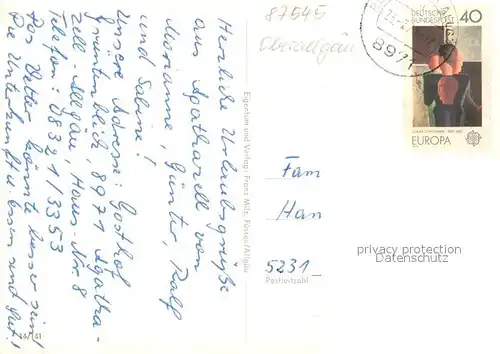 Herzliche Urlaubsgrüße
aus Agathazell von
Marianne, Günter, Ralf
und Sabine!
Unsere Adresse: Gasthof
Grüntenblick, 8971 Agatha-
Zell-Allgäu, Haus-Nr 8
Telefon: 08321/3353
Das Wetter könnte besser sein!
Die Unterkunft u. Essen sind gut!
26/151
Eigentum und Verlag: Franz Milz, Füssen/Allgäu
87545
Oberallgäu
8971
DEUTSCHE
BUNDESPOST
40
EUROPA
CEPT
Fam
Han
5231
Postleitzahl
privacy protection
Datenschutz